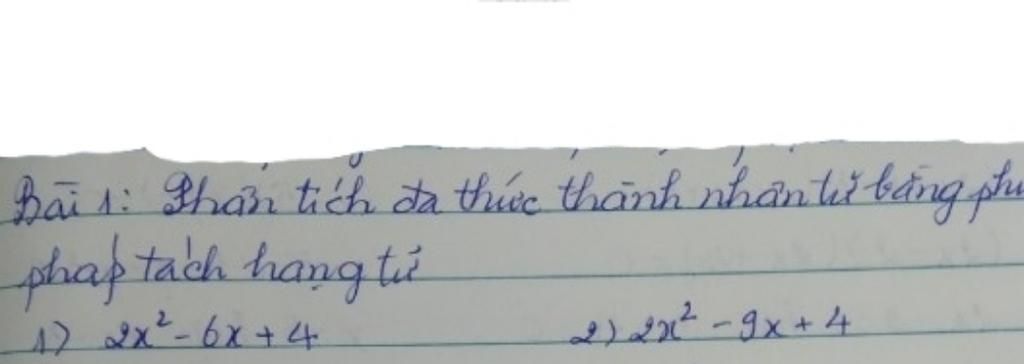 Bài 1: Phân tích đa thức thành nhân tử bằng
pháp tách hạng tử
1) 2x² - 6x + 4 2) 2x² - 9x + 4